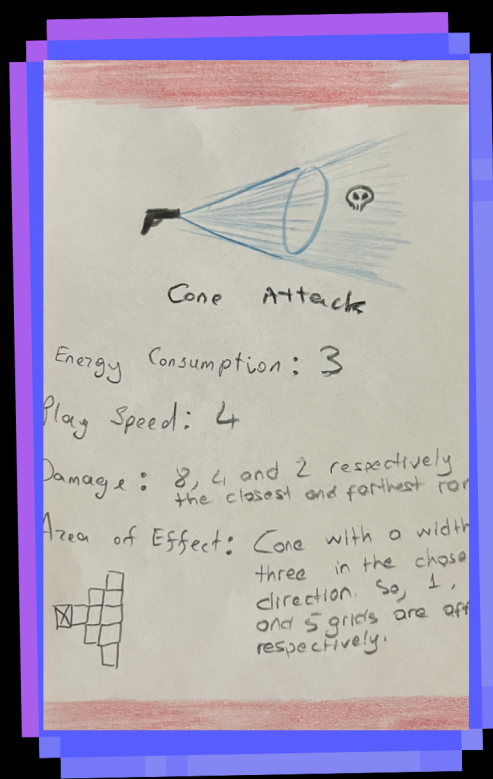 Cone Attack
Energy Consumption: 3
Play Speed: 4
Damage: 8, 4 and 2 respectively
the closest and farthest
Area of Effect: Cone with a width
three in the
direction. So, 1,
and 5 grids are
respectively.